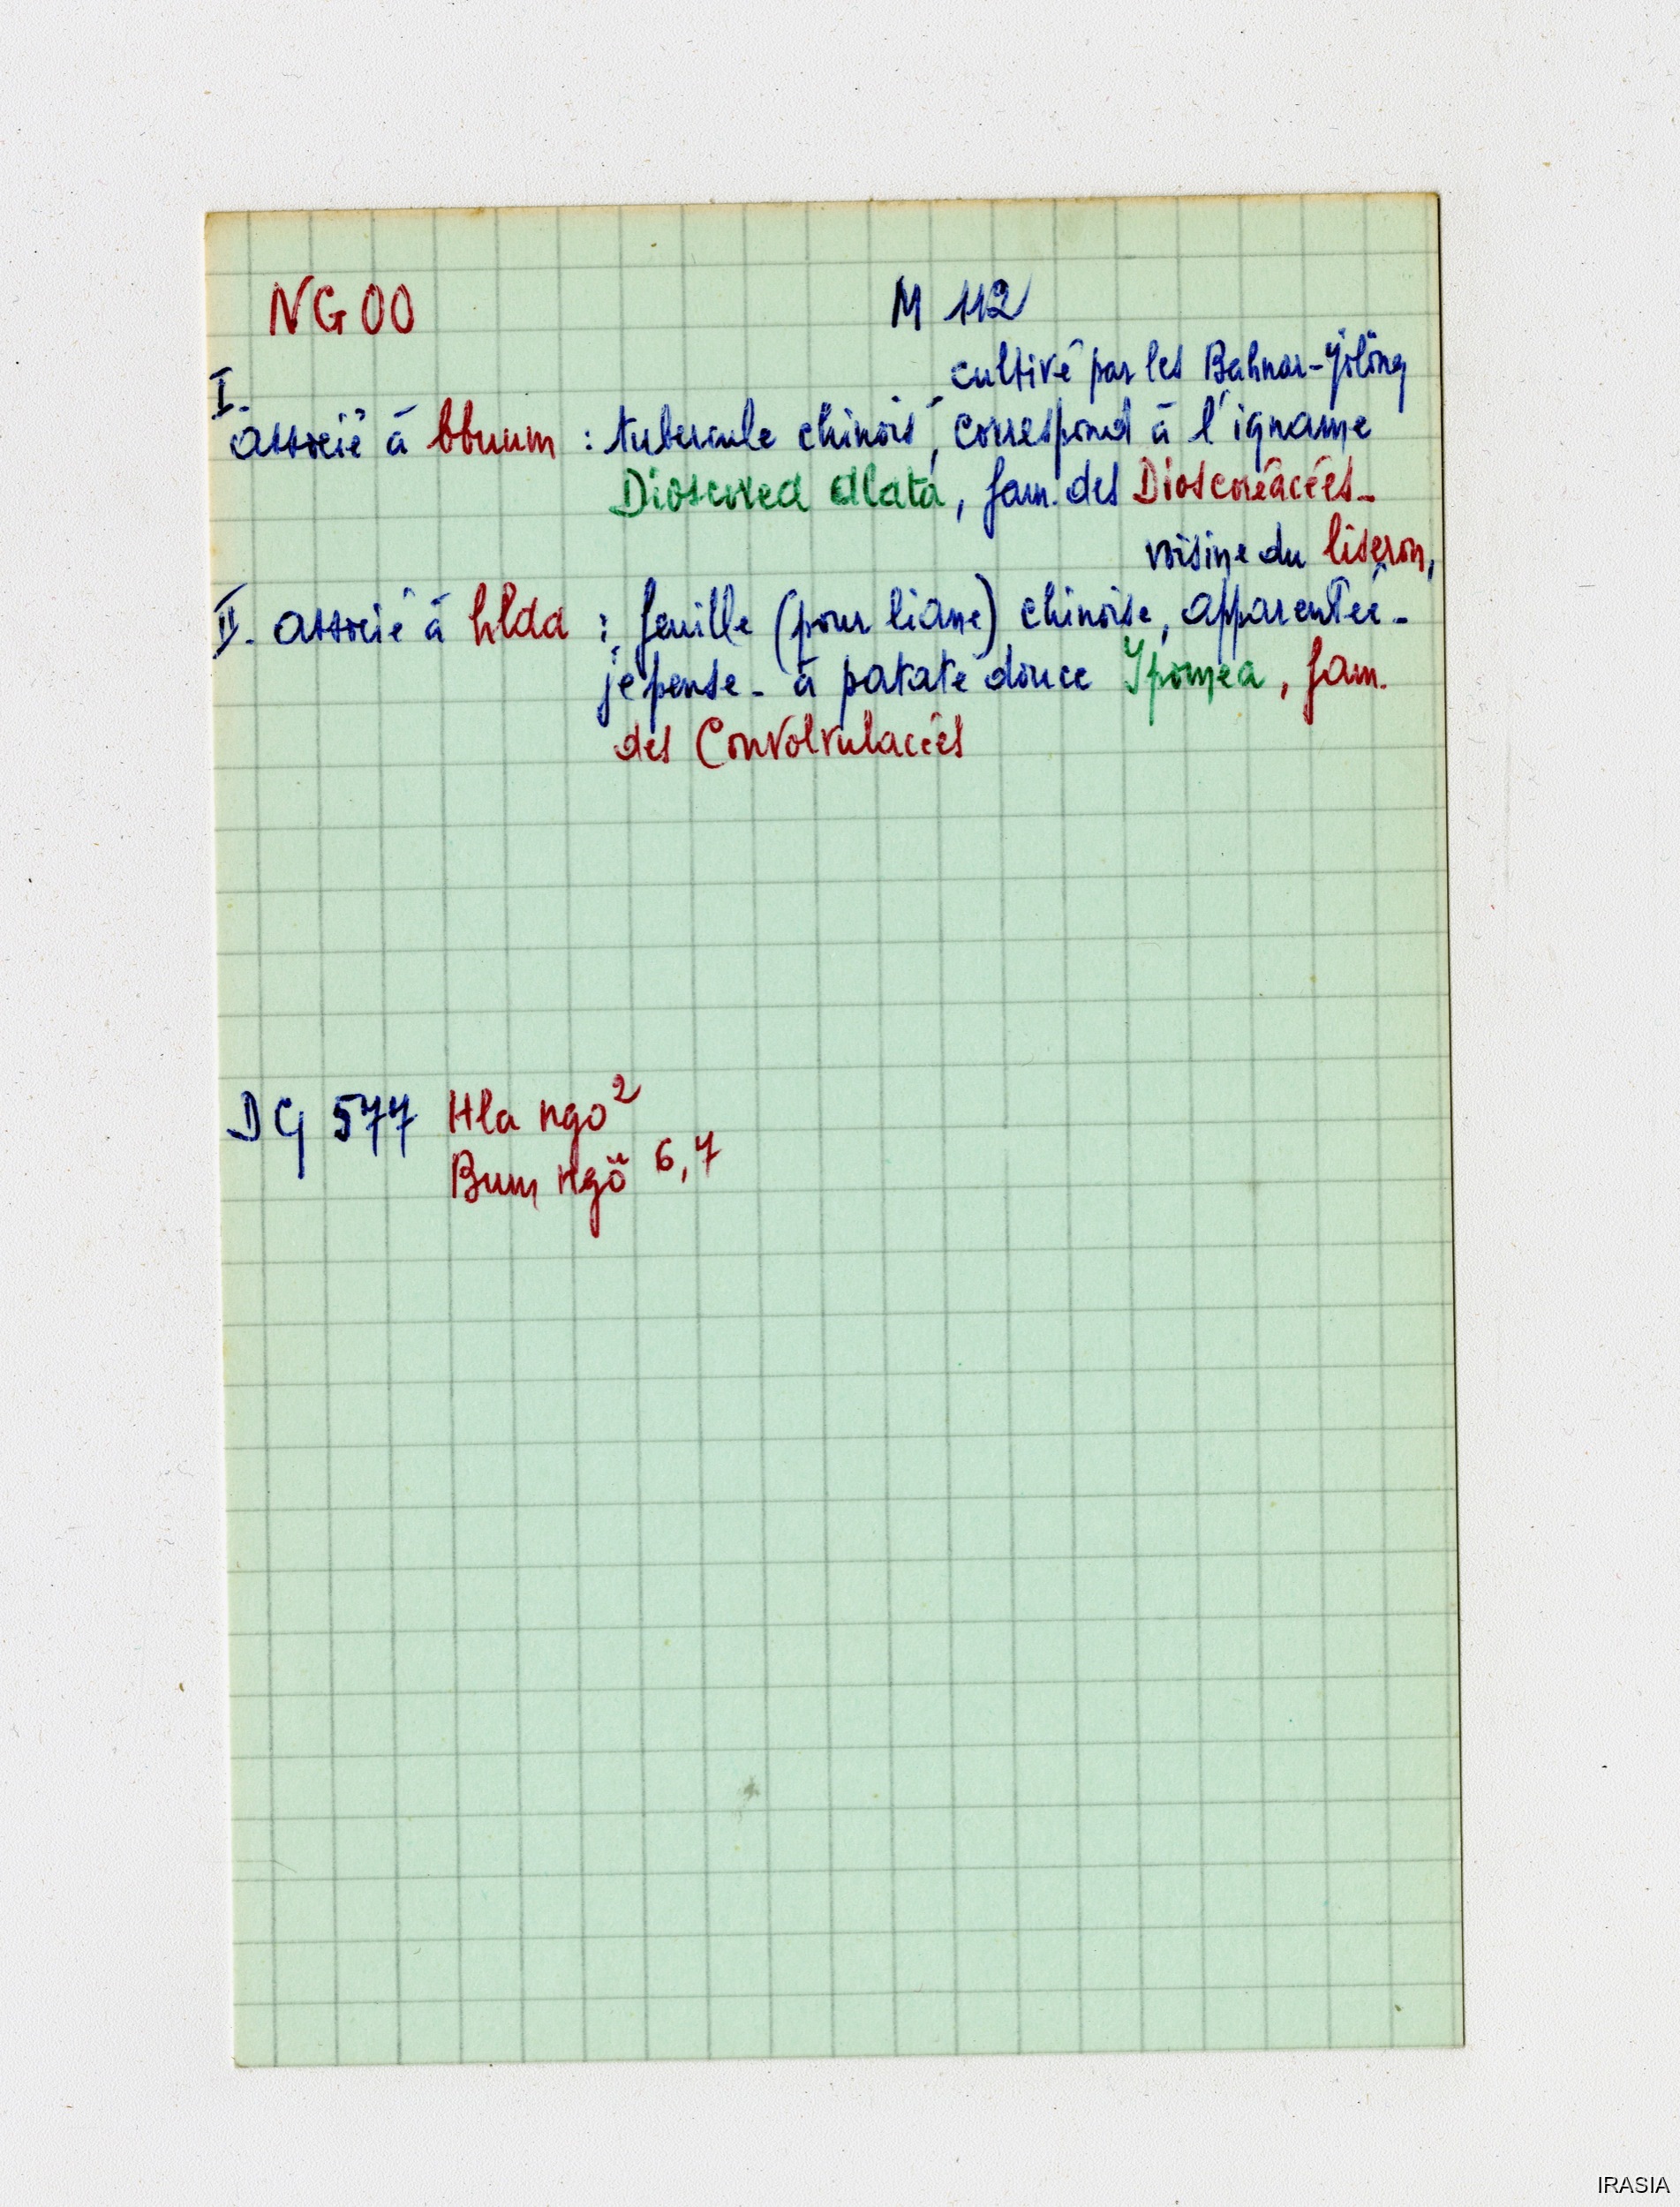 NGOO M 112
cultivé par les Bahnar-Jölöng
I.
associé à bbuum : tubercule chinois, correspond à l'igname
Dioscorea alata, fam. des Dioscoréacées_
voisine du liseron,
II. associé à hlaa : feuille (pour liane) chinoise, apparentée_
je pense_ à patate douce Ypomea, fam.
des Convolvulacées
DG 577 Hla ngo 2
Bum 6,7
IRASIA